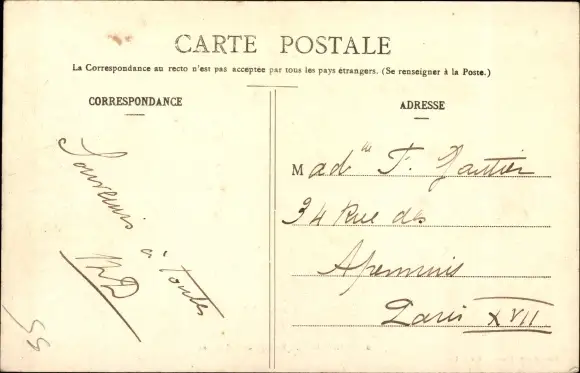 CARTE POSTALE
La Correspondance au recto n'est pas acceptée par tous les pays étrangers. (Se renseigner à la Poste.)
CORRESPONDANCE
Souvenirs
à Toutes
MD
ADRESSE
Madame F. Gautier
34 Rue des
Apennins
Paris XVII